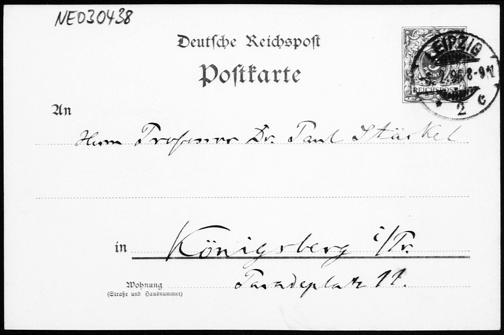 NE030438
Deutsche Reichspost
Postkarte
LEIPZIG
8-9V.
2 c
An
Herrn Professor Dr. Paul Stäckel
in Königsberg i/Pr.
Wohnung
(Straße und Hausnummer)
Paradeplatz 11.